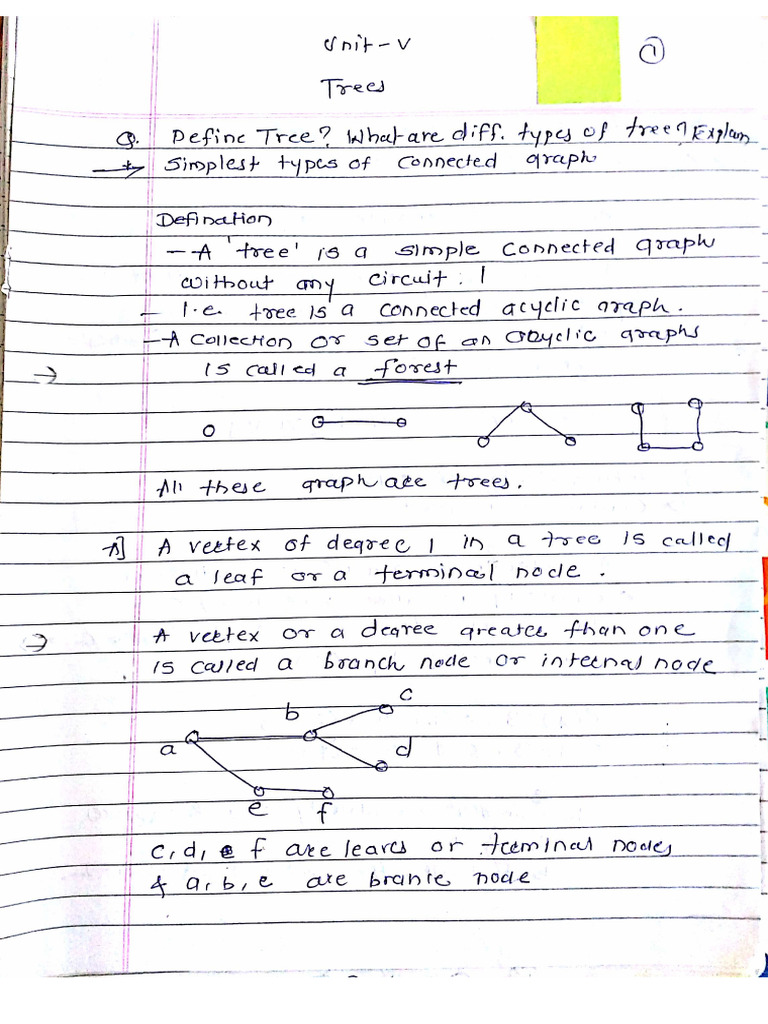 Unit-V
1
Trees
Q. Define Tree? What are diff. types of tree? Explain
* Simplest types of connected graph
Defination
- A 'tree' is a simple connected graph
without any circuit.
- I.e. tree is a connected acyclic graph.
- A collection or set of an acyclic graphs
is called a forest
All these graph are trees.
A] A vertex of degree 1 in a tree is called
a leaf or a terminal node.
A vertex or a degree greater than one
is called a branch node or internal node
c
b
a
d
e f
c, d, f are leaves or terminal nodes
& a, b, e are branie node